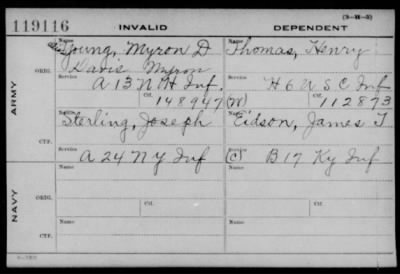 (3-M-3)
119116 INVALID DEPENDENT
Name Name
Young, Myron D Thomas, Henry
Davis Myron
ARMY
ORIG. Service Service
A 13 N H Inf. H 6 U S C Inf
Ctf. 148947 (W) Ctf. 112873
Name Name
Sterling, Joseph Eidson, James T
CTF. Service Service
A 24 N Y Inf (C) B 17 Ky Inf
NAVY
Name Name
ORIG.
Ctf. Ctf.
Name Name
CTF.